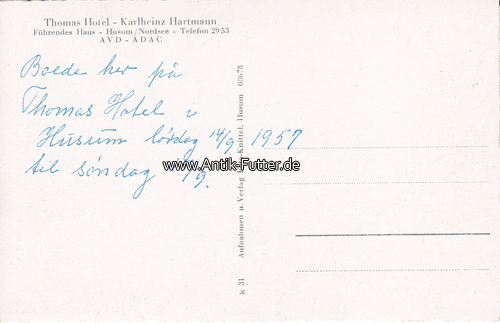 Thomas Hotel - Karlheinz Hartmann
Führendes Haus - Husum/Nordsee - Telefon 2953
AVD - ADAC
Boede her på
Thomas Hotel i
Husum lördag 14/9 1957
til söndag /9.
www.Antik-Futter.de
k 31 Aufnahmen u. Verlag Knittel, Husum 00678